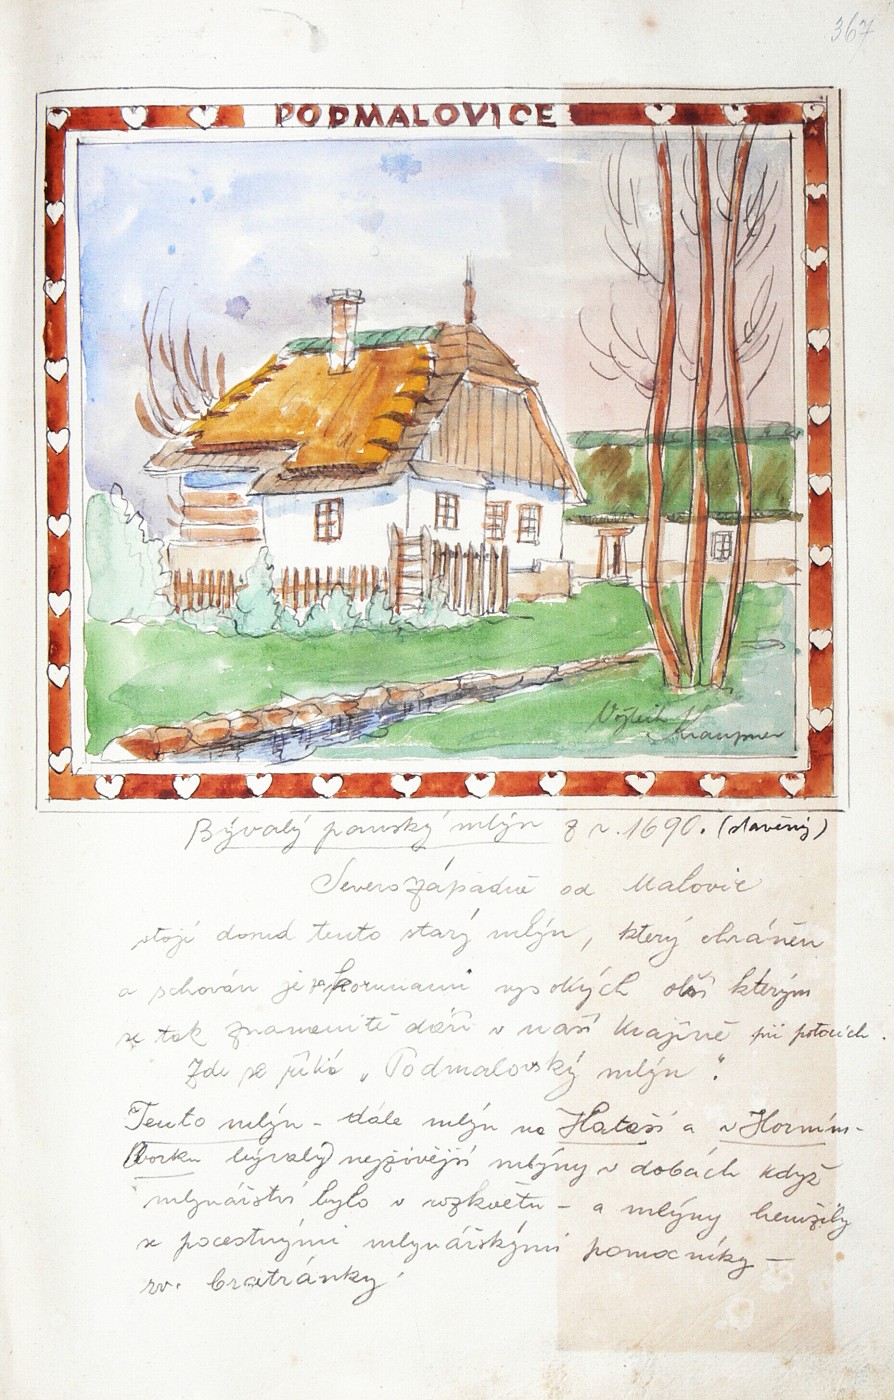 367
PODMALOVICE
Vojtěch
Kraupner
Bývalý panský mlýn z r. 1690. (stavěný)
Severozápadně od Malovic
stojí dosud tento starý mlýn, který chráněn
a schován je korunami vysokých olší kterým
se tak znamenitě daří v naší krajině při potocích.
Zde se říká „Podmalovský mlýn".
Tento mlýn - dále mlýn na a v Horním-
Borku bývaly nejživější mlýny v dobách když
mlynářství bylo v rozkvětu - a mlýny hemžily
se pocestnými mlynářskými pomocníky -
zv. braitránky.